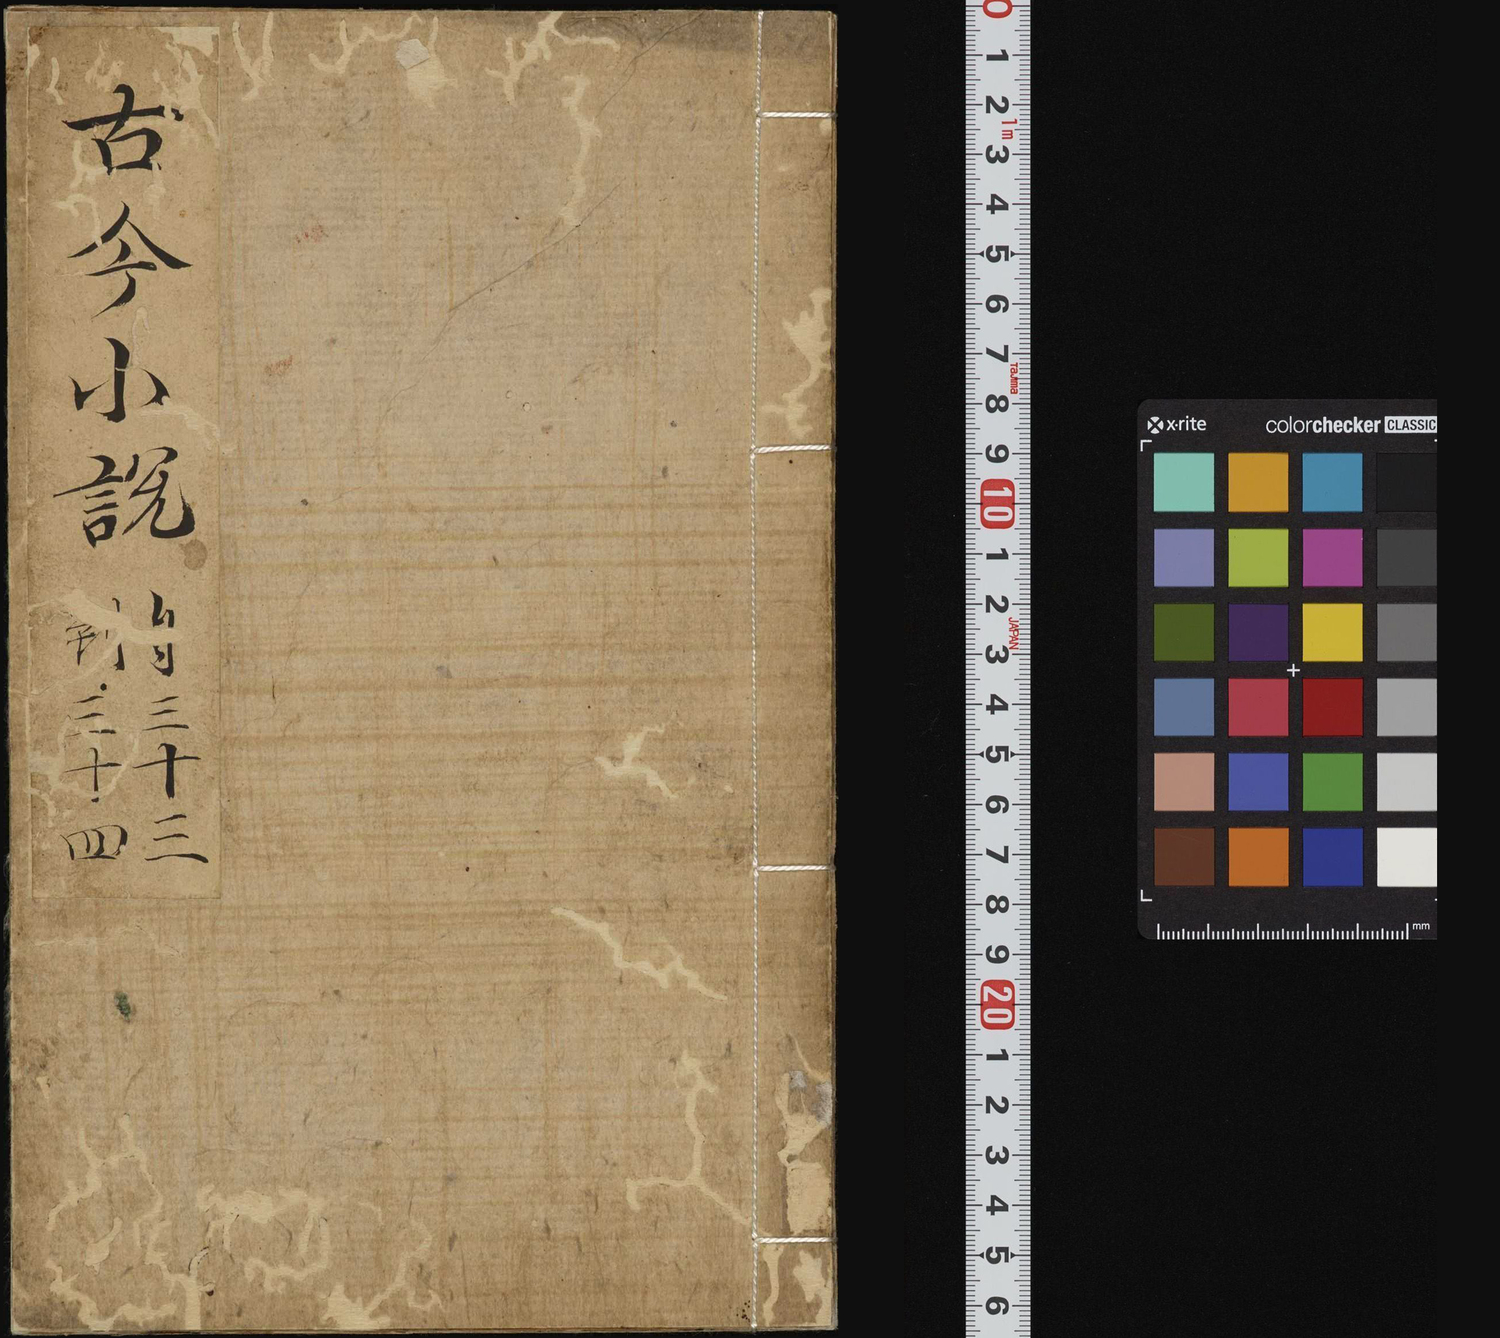 古今小説
三十三
三十四
0 1 2 3 4 5 6 7 8 9 10 1 2 3 4 5 6 7 8 9 20 1 2 3 4 5 6
1m
Tajima
JAPAN
x-rite
colorchecker CLASSIC
mm